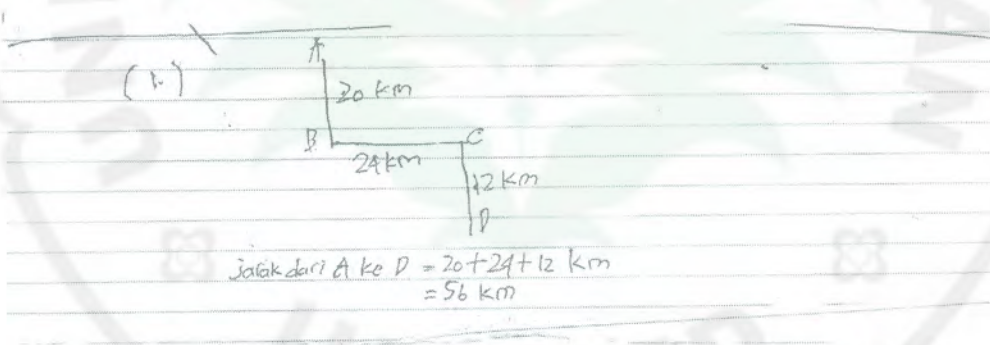 A
20 km
B
C
24 km
12 km
D
jarak dari A ke D = 20+24+12 km
= 56 km